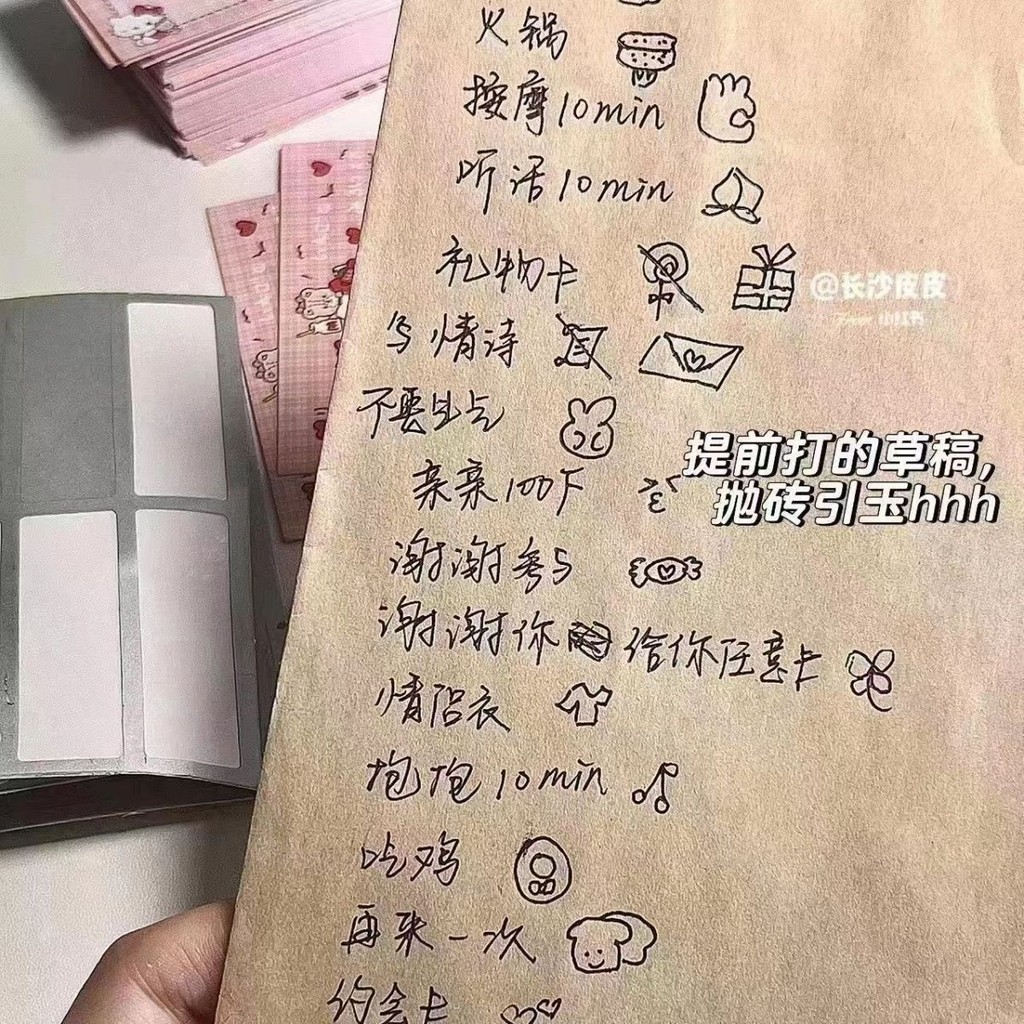 火锅
按摩10min
听话10min
礼物卡
@长沙皮皮
小红书
写情诗
不要生气
提前打的草稿，
抛砖引玉hhh
亲亲100下
谢谢参与
谢谢你 给你任意卡
情侣衣
抱抱10min
吃鸡
再来一次
约会卡